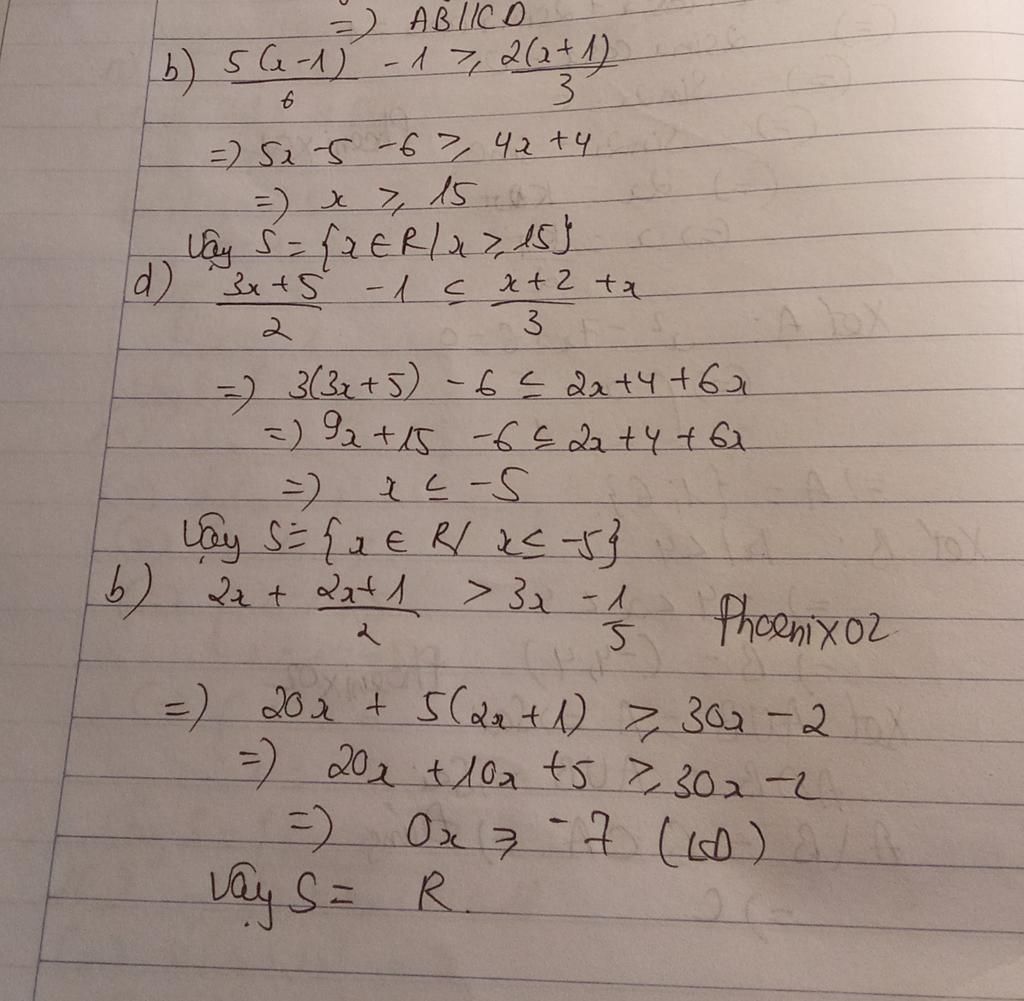 =) AB//CD
b) 5(x-1)/6 - 1 ≥ 2(x+1)/3
=) 5x - 5 - 6 ≥ 4x + 4
=) x ≥ 15
Vậy S = {x ∈ R/x ≥ 15}
d) 3x+5/2 - 1 ≤ x+2/3 + x
=) 3(3x+5) - 6 ≤ 2x+4+6x
=) 9x+15 - 6 ≤ 2x+4+6x
=) x ≤ -5
Vậy S = {x ∈ R/ x ≤ -5}
b) 2x + 2x+1/2 > 3x - 1/5
Phoenix02
=) 20x + 5(2x+1) ≥ 30x - 2
=) 20x + 10x + 5 ≥ 30x - 2
=) 0x ≥ -7 (LĐ)
Vậy S = R.